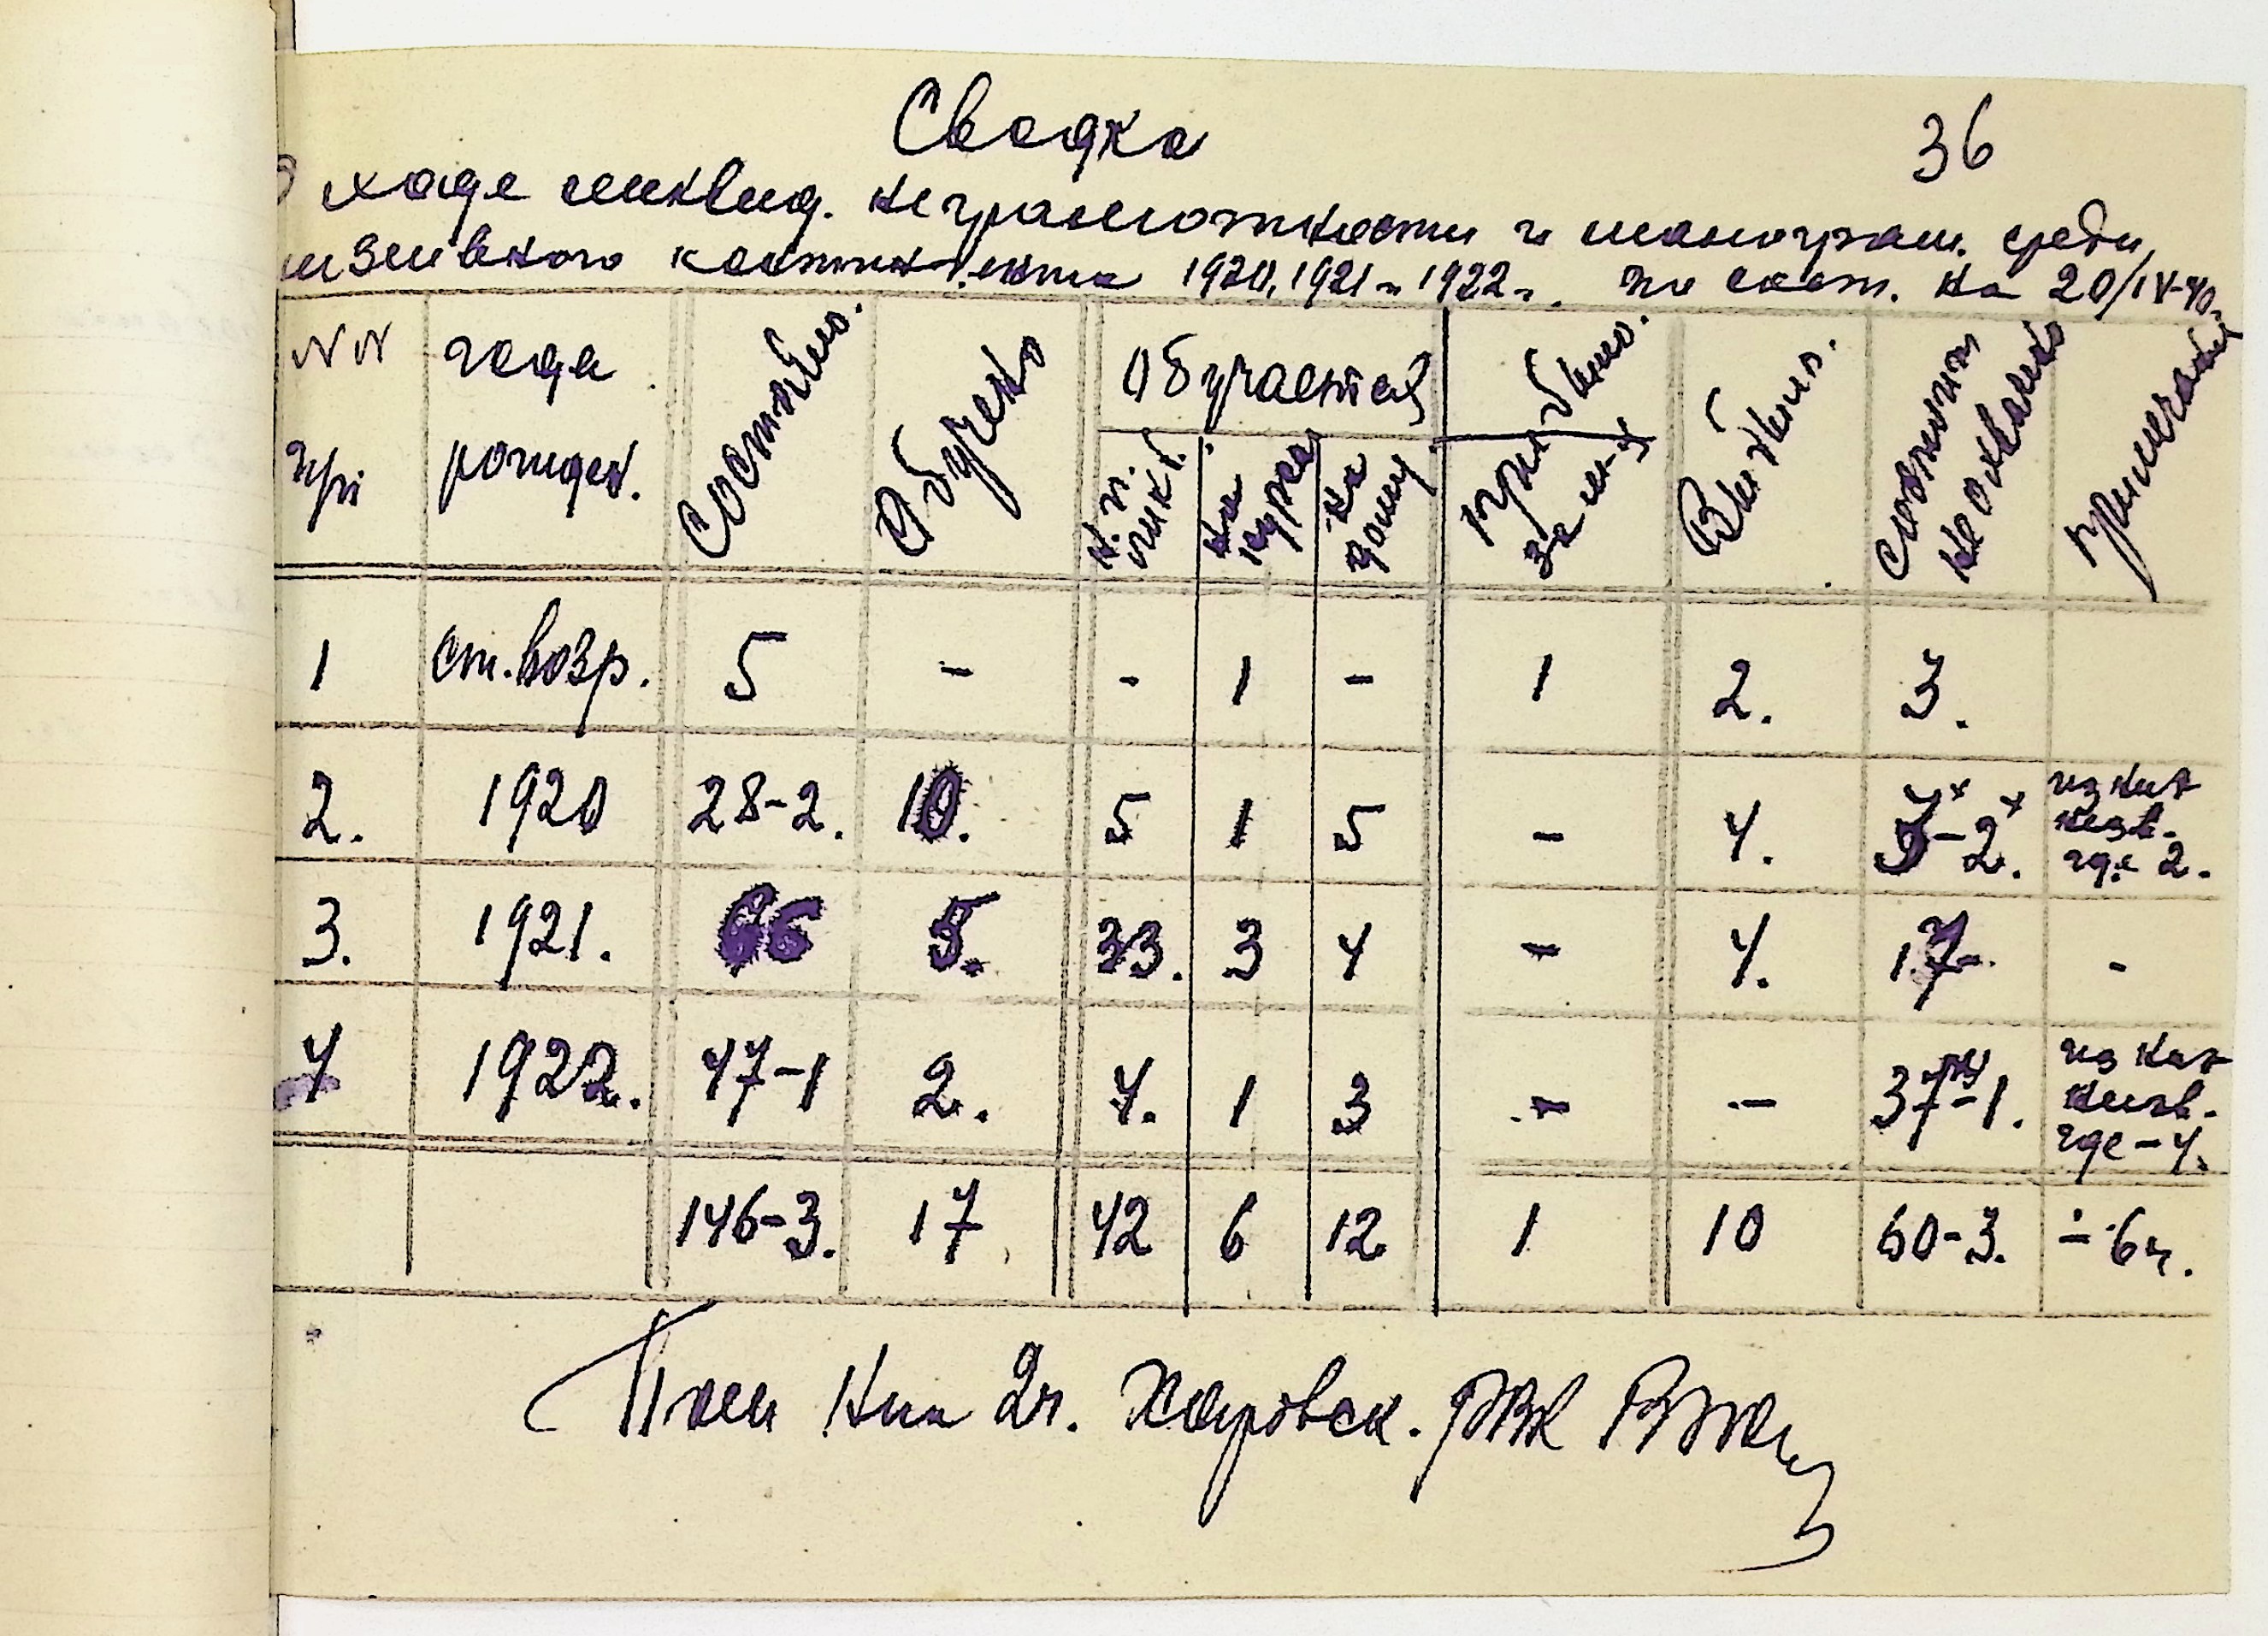 Сводка
36
О ходе ликвид. неграмотности и малограм. среди
призывного контингента 1920, 1921 и 1922 г. по сост. на 20/IV-40.
NN года Состояло. Обучено Обучается Прибыло. Выбыло. Состоит не охвачено Примечание
п/п рожден. на курсах на дому
1 ст. возр. 5 - - 1 - 1 2. 3.
2. 1920 28-2. 10. 5 1 5 - 4. -2. из них
неизв.
где 2.
3. 1921. 66 5. 33. 3 4 - 4. 17-. -
4 1922. 47-1 2. 4. 1 3 - - 37-1. из них
неизв.
где - 4.
146-3. 17 42 6 12 1 10 60-3. - 6ч.
Пом Нач 2ч. Харовск. РВК